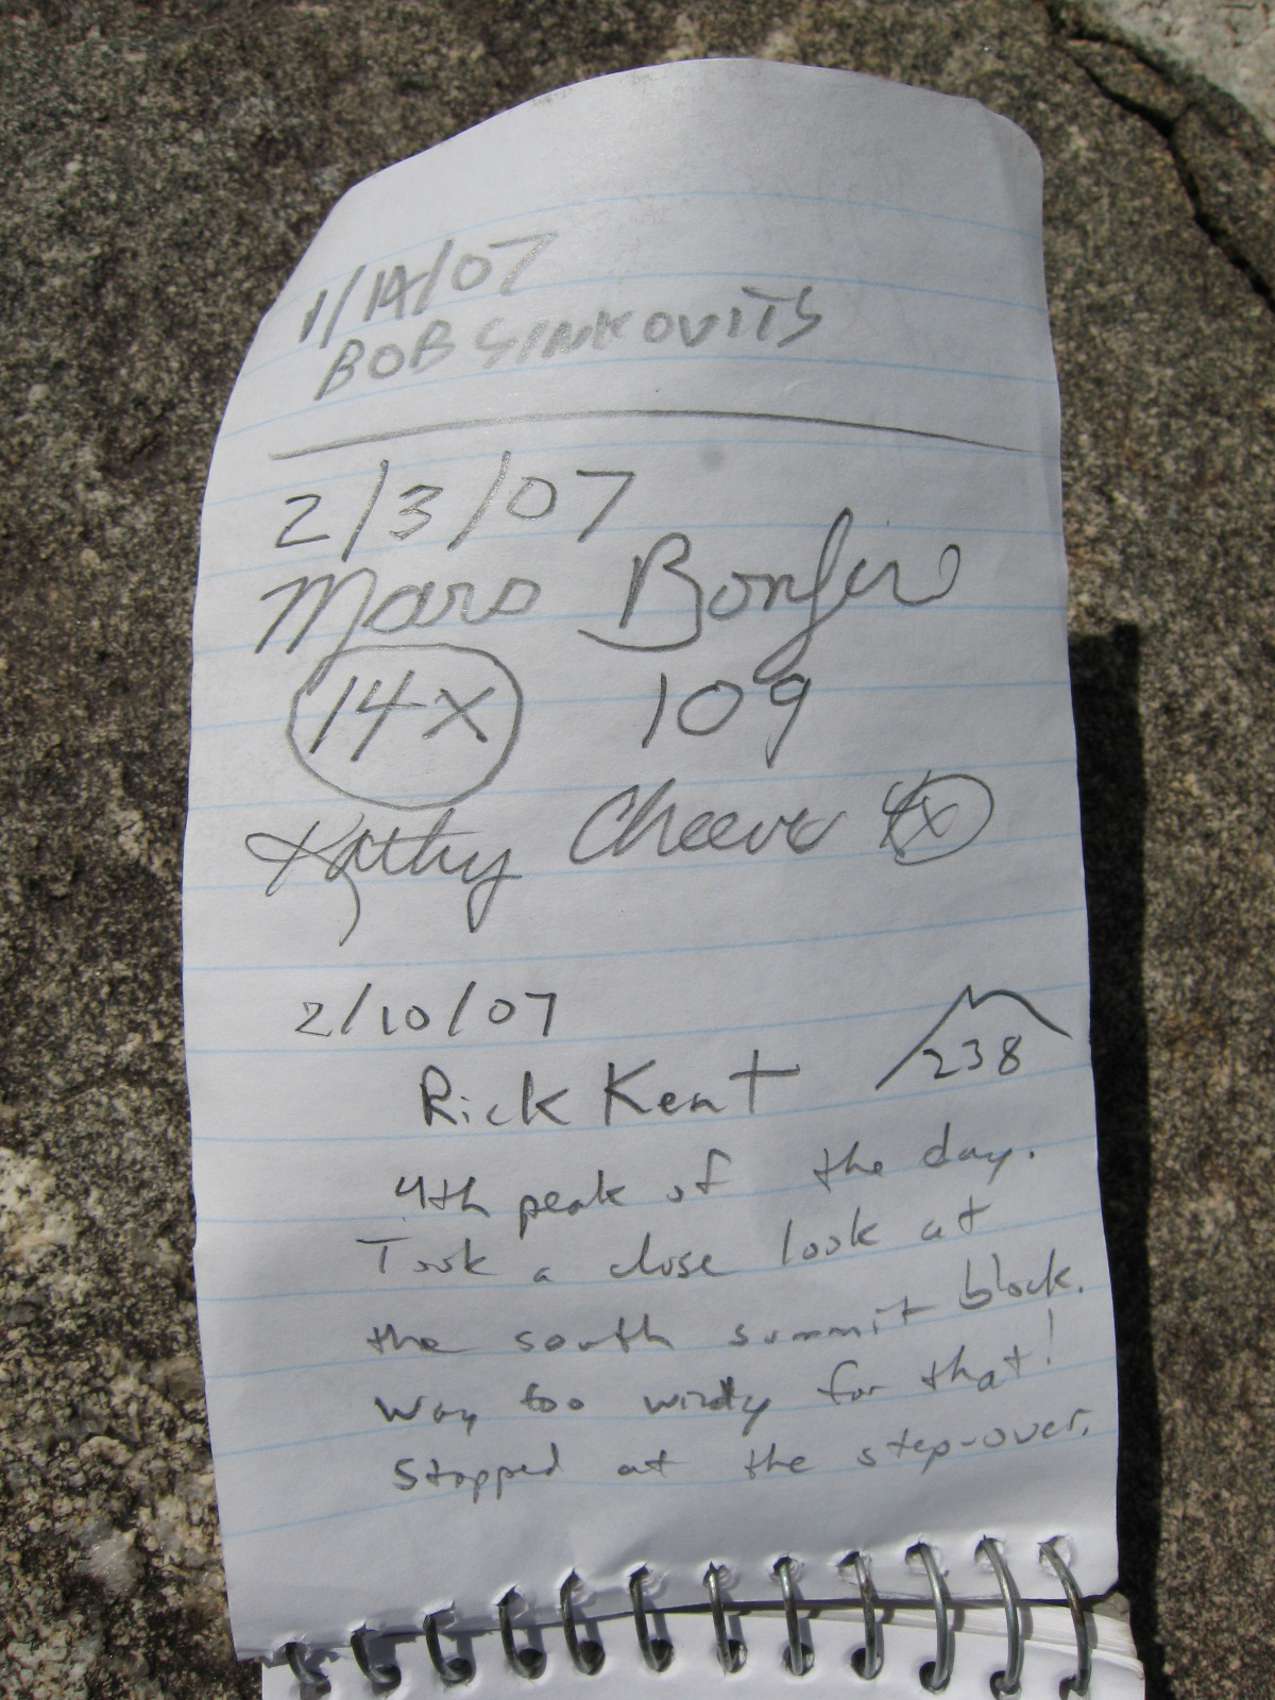 1/14/07
BOB SINKOVITS
2/3/07
Mars Bonfire
14x 109
Kathy Cheever 4x
2/10/07
Rick Kent 238
4th peak of the day.
Took a close look at
the south summit block.
Way too windy for that!
Stopped at the step-over.